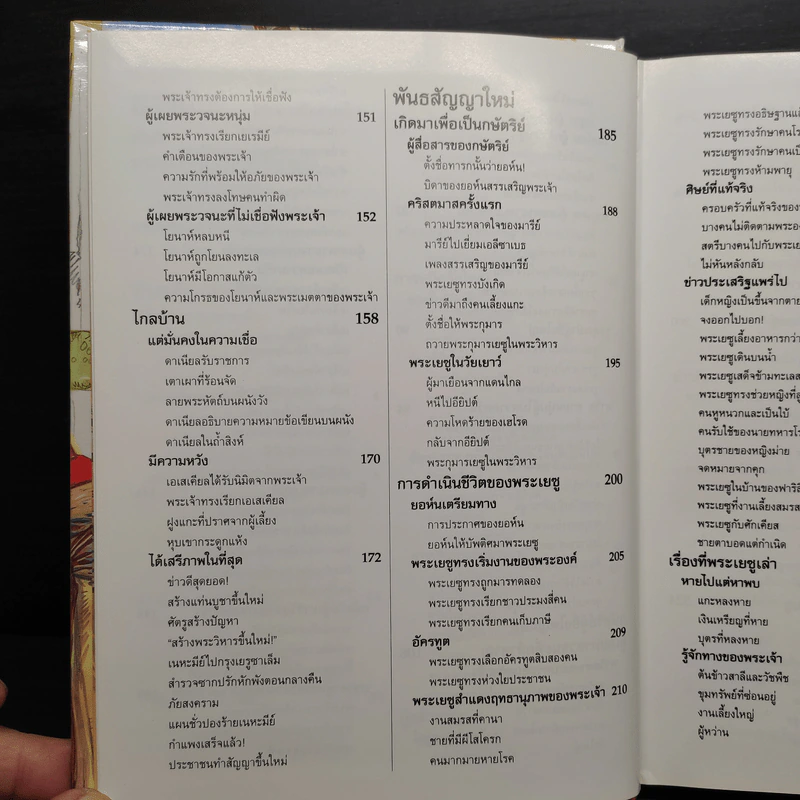 พระเจ้าทรงต้องการให้เชื่อฟัง
ผู้เผยพระวจนะหนุ่ม 151
พระเจ้าทรงเรียกเยเรมีย์
คำเตือนของพระเจ้า
ความรักที่พร้อมให้อภัยของพระเจ้า
พระเจ้าทรงลงโทษคนทำผิด
ผู้เผยพระวจนะที่ไม่เชื่อฟังพระเจ้า 152
โยนาห์หลบหนี
โยนาห์ถูกโยนลงทะเล
โยนาห์มีโอกาสแก้ตัว
ความโกรธของโยนาห์และพระเมตตาของพระเจ้า
ไกลบ้าน 158
แต่มั่นคงในความเชื่อ
ดาเนียลรับราชการ
เตาเผาที่ร้อนจัด
ลายพระหัตถ์บนผนังวัง
ดาเนียลอธิบายความหมายข้อเขียนบนผนัง
ดาเนียลในถ้ำสิงห์
มีความหวัง 170
เอเสเคียลได้รับนิมิตจากพระเจ้า
พระเจ้าทรงเรียกเอเสเคียล
ฝูงแกะที่ปราศจากผู้เลี้ยง
หุบเขากระดูกแห้ง
ได้เสรีภาพในที่สุด 172
ข่าวดีสุดยอด!
สร้างแท่นบูชาขึ้นใหม่
ศัตรูสร้างปัญหา
“สร้างพระวิหารขึ้นใหม่!”
เนหะมีย์ไปกรุงเยรูซาเล็ม
สำรวจซากปรักหักพังตอนกลางคืน
ภัยสงคราม
แผนชั่วปองร้ายเนหะมีย์
กำแพงเสร็จแล้ว!
ประชาชนทำสัญญาขึ้นใหม่
พันธสัญญาใหม่
เกิดมาเพื่อเป็นกษัตริย์ 185
ผู้สื่อสารของกษัตริย์
ตั้งชื่อทารกนั้นว่ายอห์น!
บิดาของยอห์นสรรเสริญพระเจ้า
คริสตมาสครั้งแรก 188
ความประหลาดใจของมารีย์
มารีย์ไปเยี่ยมเอลีซาเบธ
เพลงสรรเสริญของมารีย์
พระเยซูทรงบังเกิด
ข่าวดีมาถึงคนเลี้ยงแกะ
ตั้งชื่อให้พระกุมาร
ถวายพระกุมารเยซูในพระวิหาร
พระเยซูในวัยเยาว์ 195
ผู้มาเยือนจากแดนไกล
หนีไปอียิปต์
ความโหดร้ายของเฮโรด
กลับจากอียิปต์
พระกุมารเยซูในพระวิหาร
การดำเนินชีวิตของพระเยซู 200
ยอห์นเตรียมทาง
การประกาศของยอห์น
ยอห์นให้บัพติศมาพระเยซู
พระเยซูทรงเริ่มงานของพระองค์ 205
พระเยซูทรงถูกมารทดลอง
พระเยซูทรงเรียกชาวประมงสี่คน
พระเยซูทรงเรียกคนเก็บภาษี
อัครทูต 209
พระเยซูทรงเลือกอัครทูตสิบสองคน
พระเยซูทรงห่วงใยประชาชน
พระเยซูสำแดงฤทธานุภาพของพระเจ้า 210
งานสมรสที่คานา
ชายที่มีผีโสโครก
คนมากมายหายโรค
พระเยซูทรงอธิษฐานแล
พระเยซูทรงรักษาคนโร
พระเยซูทรงรักษาคนเป็
พระเยซูทรงห้ามพายุ
ศิษย์ที่แท้จริง
ครอบครัวที่แท้จริงของพ
บางคนไม่ติดตามพระอง
สตรีบางคนไปกับพระเย
ไม่หันหลังกลับ
ข่าวประเสริฐแพร่ไป
เด็กหญิงเป็นขึ้นจากตาย
จงออกไปบอก!
พระเยซูเลี้ยงอาหารกว่า
พระเยซูเดินบนน้ำ
พระเยซูเสด็จข้ามทะเลส
พระเยซูทรงช่วยหญิงที่
คนหูหนวกและเป็นใบ้
คนรับใช้ของนายทหารโร
บุตรชายของหญิงม่าย
จดหมายจากคุก
พระเยซูในบ้านของฟาริสี
พระเยซูที่งานเลี้ยงสมรส
พระเยซูกับศักเคียส
ชายตาบอดแต่กำเนิด
เรื่องที่พระเยซูเล่า
หายไปแต่หาพบ
แกะหลงหาย
เงินเหรียญที่หาย
บุตรที่หลงหาย
รู้จักทางของพระเจ้า
ต้นข้าวสาลีและวัชพืช
ขุมทรัพย์ที่ซ่อนอยู่
งานเลี้ยงใหญ่
ผู้หว่าน